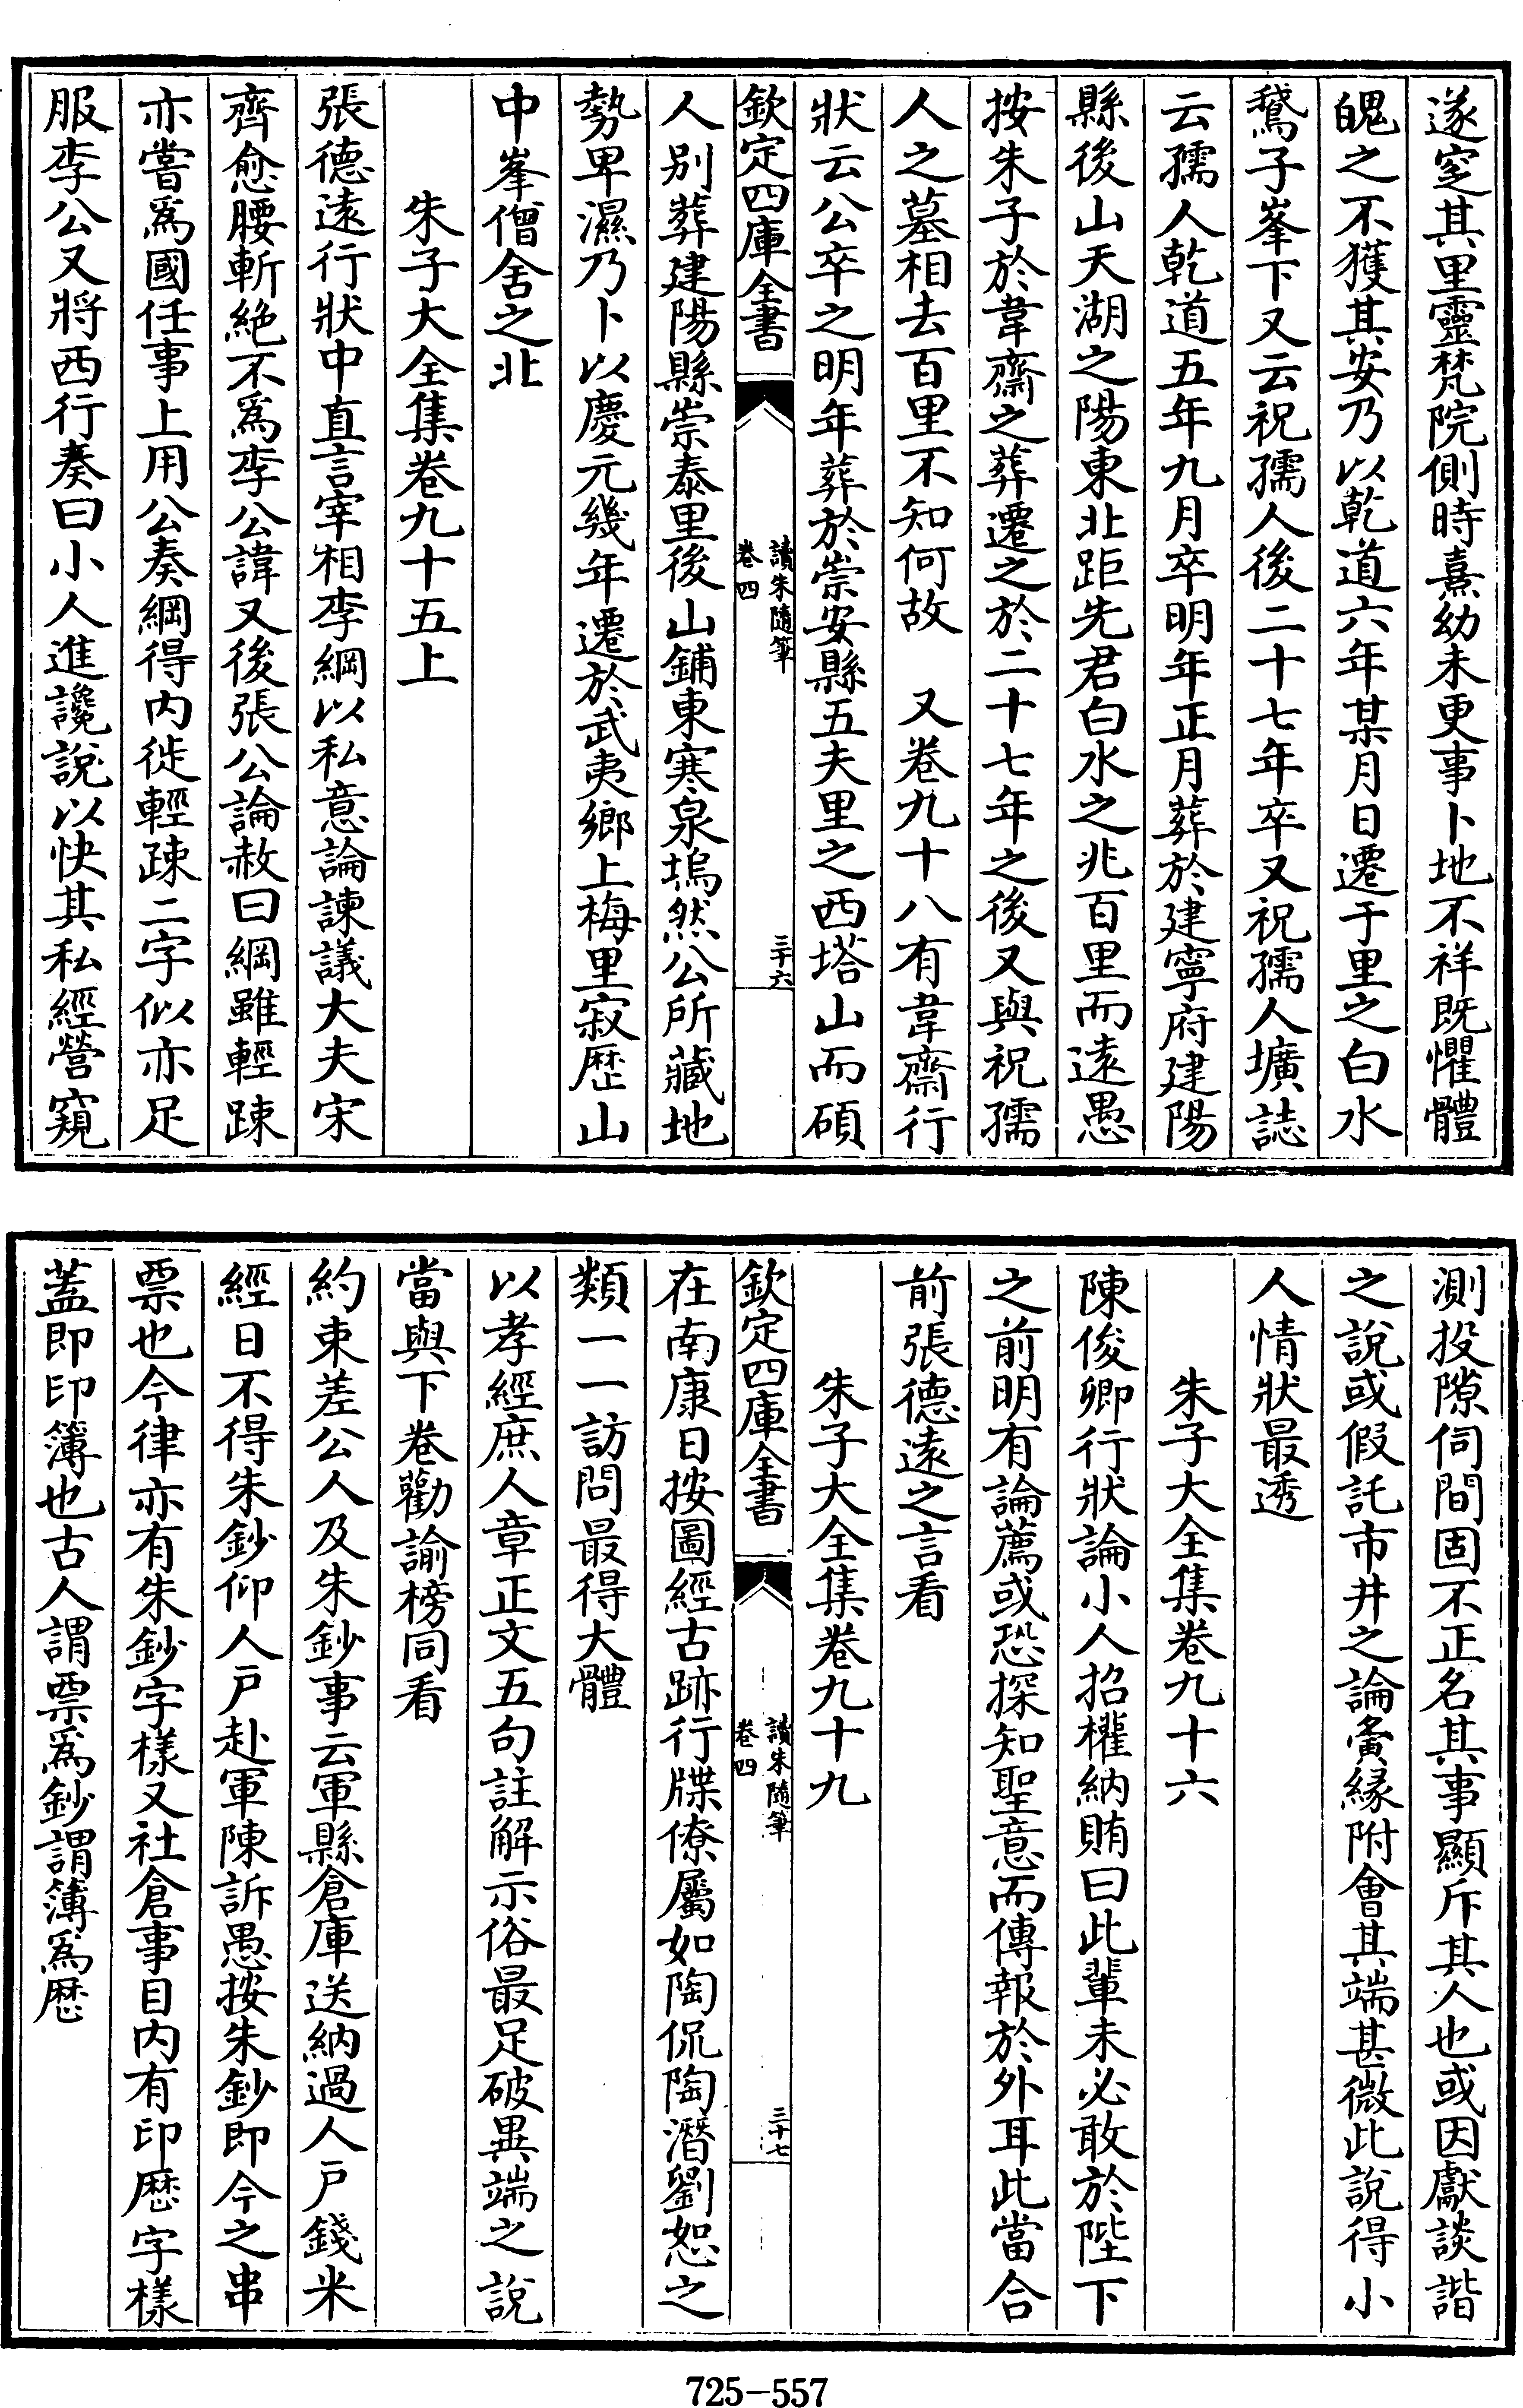 遂窆其里靈梵院側時熹幼未更事卜地不祥既懼體
魄之不獲其安乃以乾道六年某月日遷于里之白水
鵞子峯下又云祝孺人後二十七年卒又祝孺人壙誌
云孺人乾道五年九月卒明年正月葬於建寧府建陽
縣後山天湖之陽東北距先君白水之兆百里而遠愚
按朱子於韋齋之葬遷之於二十七年之後又與祝孺
人之墓相去百里不知何故　又卷九十八有韋齋行
狀云公卒之明年葬於崇安縣五夫里之西塔山而碩
欽定四庫全書
讀朱隨筆
卷四
三十六
人别葬建陽縣崇泰里後山鋪東寒泉塢然公所藏地
勢卑濕乃卜以慶元幾年遷於武夷鄉上梅里寂歴山
中峯僧舍之北
朱子大全集卷九十五上
張德遠行狀中直言宰相李綱以私意論諫議大夫宋
齊愈腰斬絶不爲李公諱又後張公論赦曰綱雖輕踈
亦嘗爲國任事上用公奏綱得内徙輕踈二字似亦足
服李公又將西行奏曰小人進讒說以快其私經營窺
測投隙伺間固不正名其事顯斥其人也或因獻談諧
之說或假託市井之論夤縁附會其端甚微此說得小
人情狀最透
朱子大全集卷九十六
陳俊卿行狀論小人招權納賄曰此輩未必敢於陛下
之前明有論薦或恐探知聖意而傳報於外耳此當合
前張德遠之言看
朱子大全集卷九十九
欽定四庫全書
讀朱隨筆
卷四
三十七
在南康日按圖經古跡行牒僚屬如陶侃陶潛劉恕之
類一一訪問最得大體
以孝經庶人章正文五句註解示俗最足破異端之說
當與下卷勸諭榜同看
約束差公人及朱鈔事云軍縣倉庫送納過人戸錢米
經日不得朱鈔仰人戸赴軍陳訴愚按朱鈔即今之串
票也今律亦有朱鈔字様又社倉事目内有印歴字様
蓋即印簿也古人謂票爲鈔謂簿爲歴
725—557